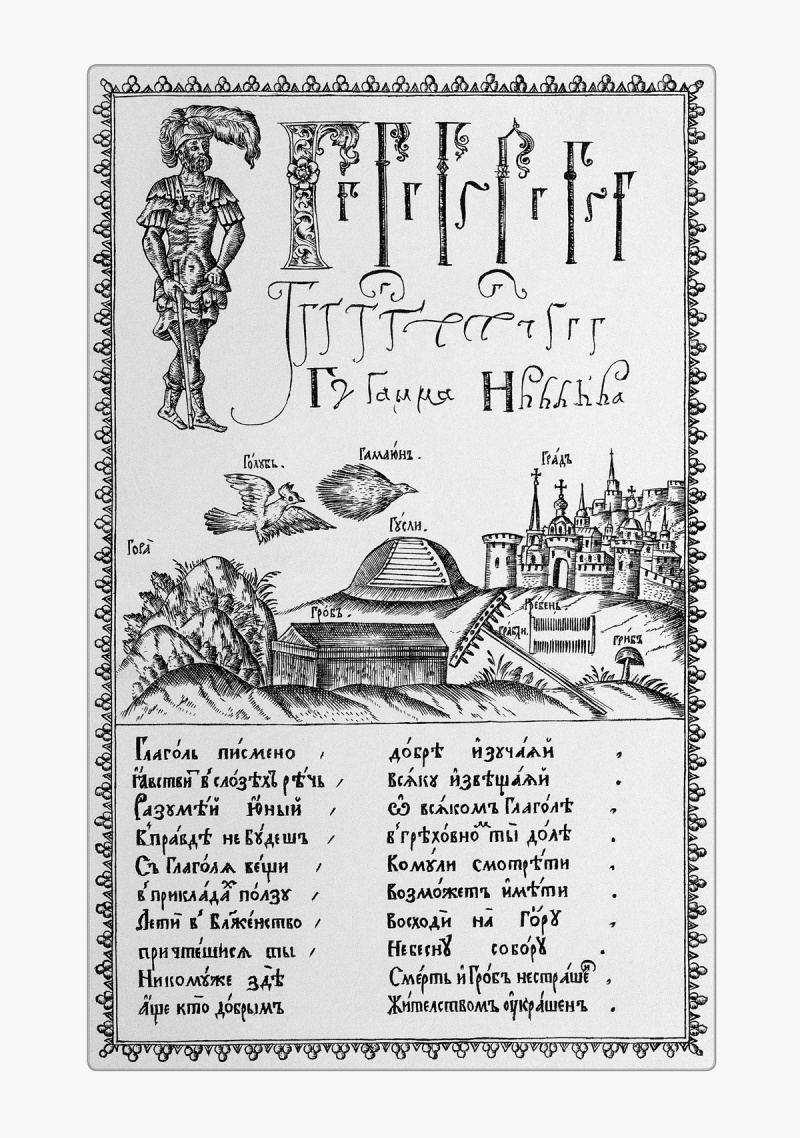 Гꙋ Гамма Н
Го́лꙋбь.
Гамаю́нъ.
Гра́дъ
Гꙋ́сли.
Гора̀
Гро́бъ.
Гре́бень.
Гра́бли.
Грибъ
Глаго́ль пи́смено , до́брѣ и҆зꙋча́ѧй ,
в̾сло́зѣхъ рѣ́чь , всѧ́кꙋ и҆звѣща́ѧй .
Разꙋмѣ́й ю҆́ный , ѡ҆ всѧ́комъ Глаго́лѣ ,
в̾пра́вдѣ не бꙋ́дешъ , в̾грѣхо́вноⷨ ты̀ до́лѣ .
Съ Глаго́лѧ ве́щи , Комꙋ́ли смотрѣ́ти ,
в̾прикла́даⷯ по́лзꙋ , возмо́жетъ и҆мѣ́ти .
Лети̇̀ в̾ Блаже́нство , восходѝ на̀ Го́рꙋ ,
причте́шисѧ ты̀ , Небе́снꙋ собо́рꙋ .
Никомꙋ́же здѣ̀ Сме́рть и҆ Гро́бъ нестра́шеⷩ ,
а҆́ще кто̀ до́брымъ Жи́телствомъ ᲂу҆кра́шенъ .